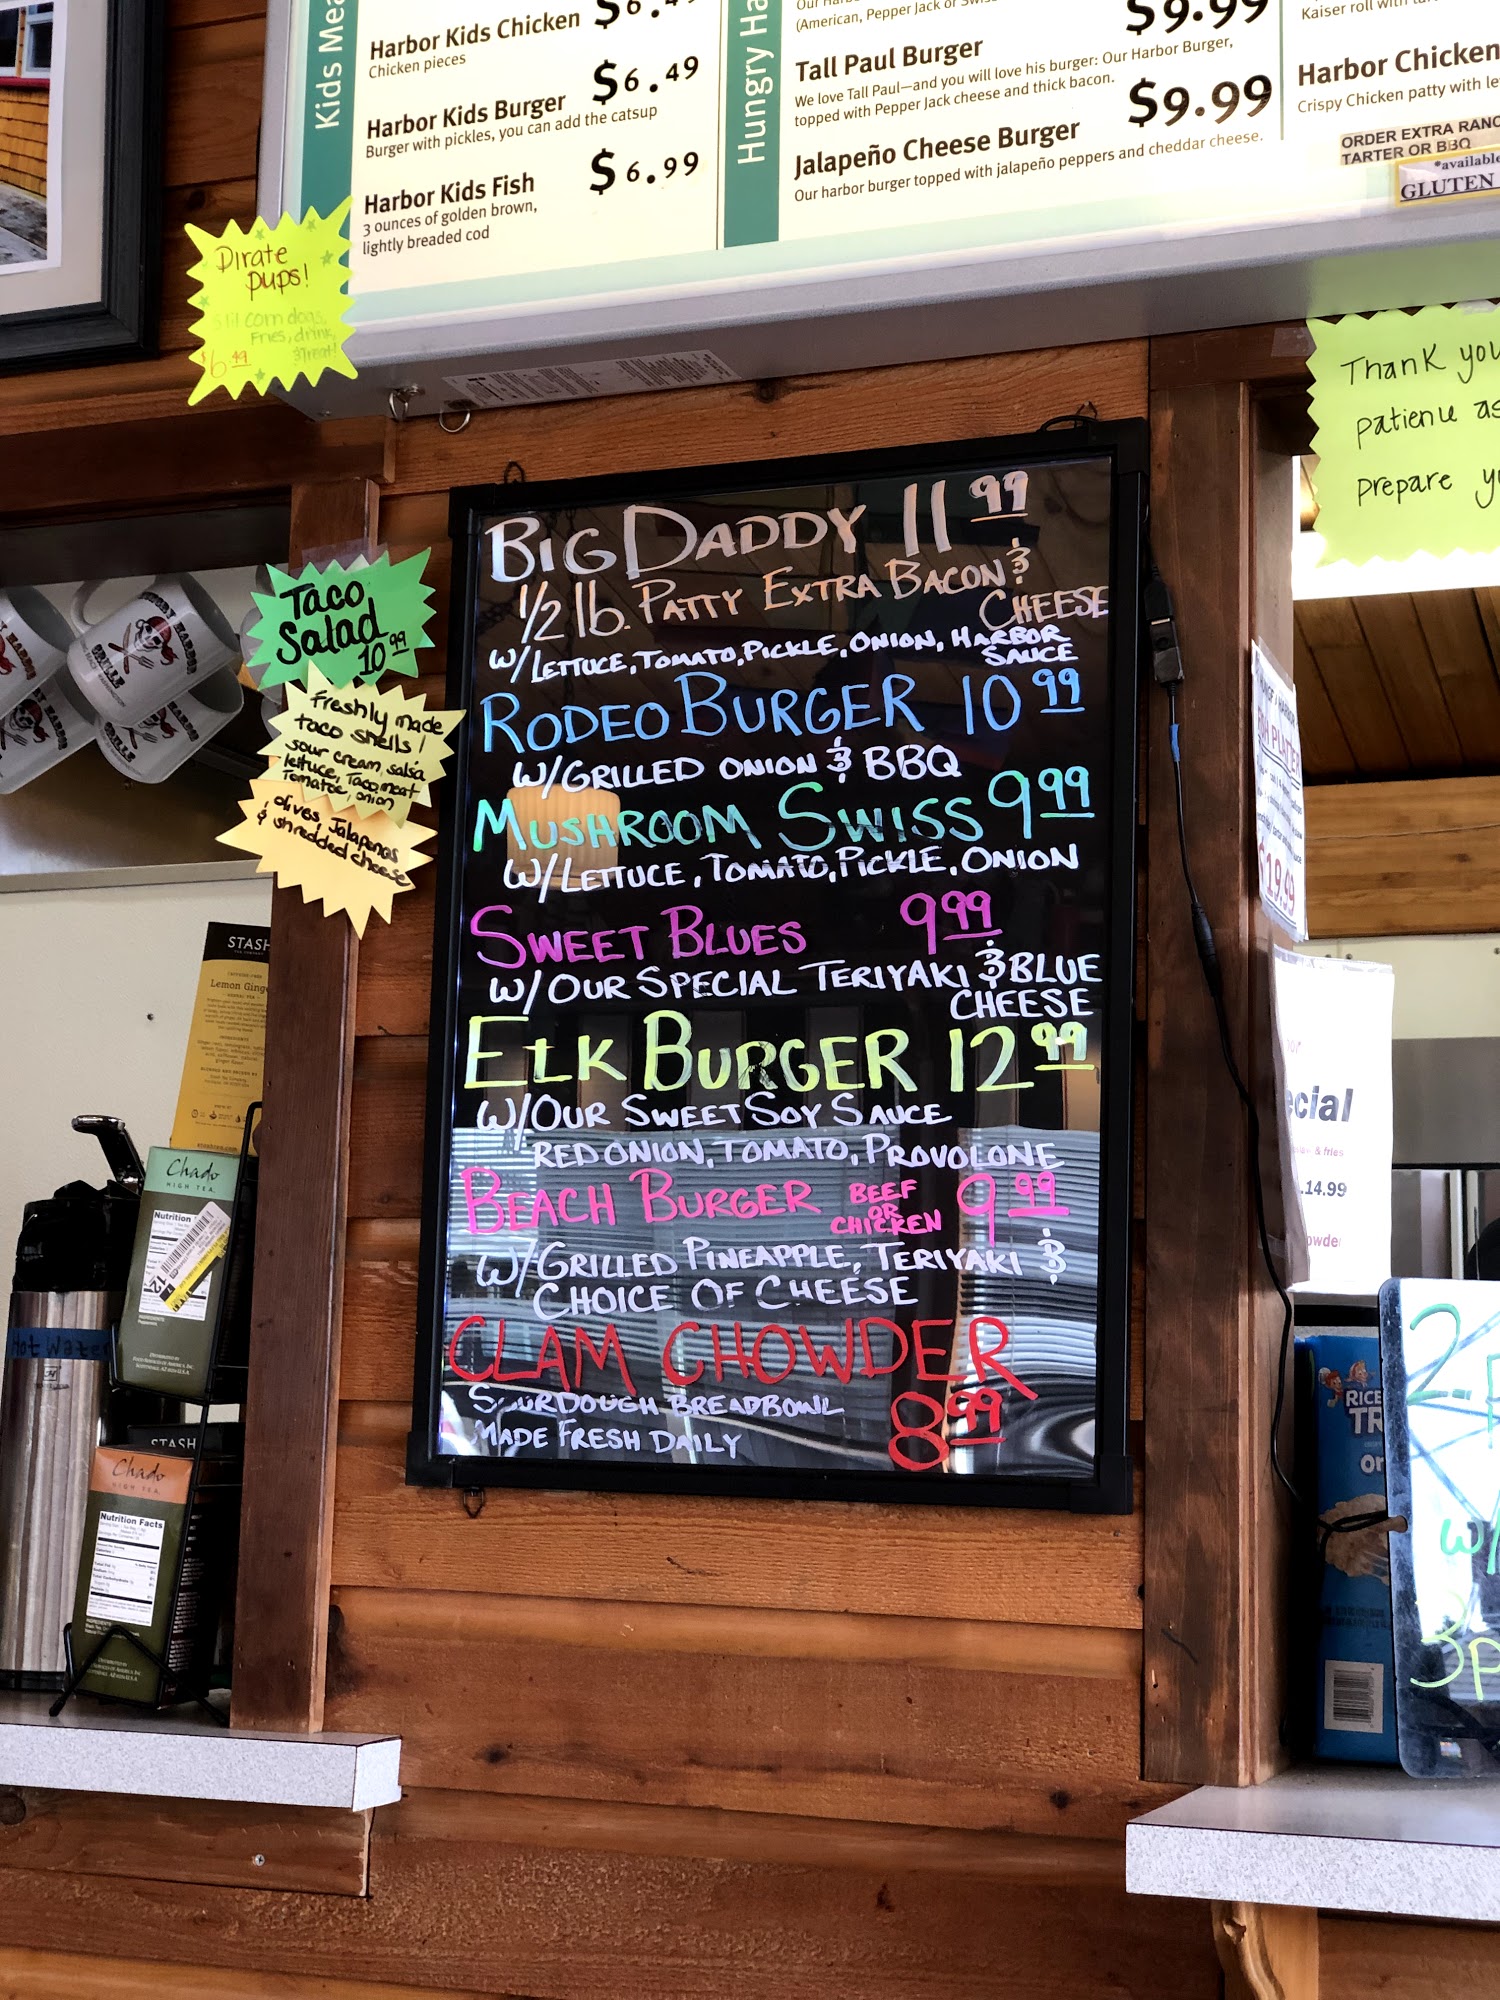 Kids Mea
Harbor Kids Chicken
Chicken pieces
Harbor Kids Burger $6.49
Burger with pickles, you can add the catsup
Harbor Kids Fish $6.99
3 ounces of golden brown,
lightly breaded cod
Hungry Ha
(American, Pepper Jack or Swiss
$9.99
Tall Paul Burger
We love Tall Paul—and you will love his burger: Our Harbor Burger,
topped with Pepper Jack cheese and thick bacon.
$9.99
Jalapeño Cheese Burger
Our harbor burger topped with jalapeño peppers and cheddar cheese.
Kaiser roll with
Harbor Chicken
Crispy Chicken patty with le
ORDER EXTRA RANC
TARTER OR BBQ
*available
GLUTEN
Pirate
pups!
corn dogs,
Fries, drink,
treat!
$6 49
Thank you
patience as
prepare y
Taco
Salad
10 99
Freshly made
taco shells!
sour cream, salsa
lettuce, Taco meat
Tomatoe, onion
olives, Jalapenos
& shredded cheese
BIG DADDY 11 99
1/2 lb. PATTY EXTRA BACON &
CHEESE
W/LETTUCE, TOMATO, PICKLE, ONION, HARBOR
SAUCE
RODEO BURGER 10 99
W/GRILLED ONION & BBQ
MUSHROOM SWISS 9 99
W/LETTUCE, TOMATO, PICKLE, ONION
SWEET BLUES 9 99
W/OUR SPECIAL TERIYAKI & BLUE
CHEESE
ELK BURGER 12 99
W/OUR SWEET SOY SAUCE
RED ONION, TOMATO, PROVOLONE
BEACH BURGER BEEF OR CHICKEN 9 99
W/GRILLED PINEAPPLE, TERIYAKI &
CHOICE OF CHEESE
CLAM CHOWDER
SOURDOUGH BREADBOWL 8 99
MADE FRESH DAILY
STASH
Lemon Ginge
Chado
HIGH TEA
Nutrition
Hot Water
STASH
Chado
HIGH TEA
Nutrition Facts
PLATTER
$19.99
ecial
& fries
.14.99
owder
RICE
TR
2
w/
3p